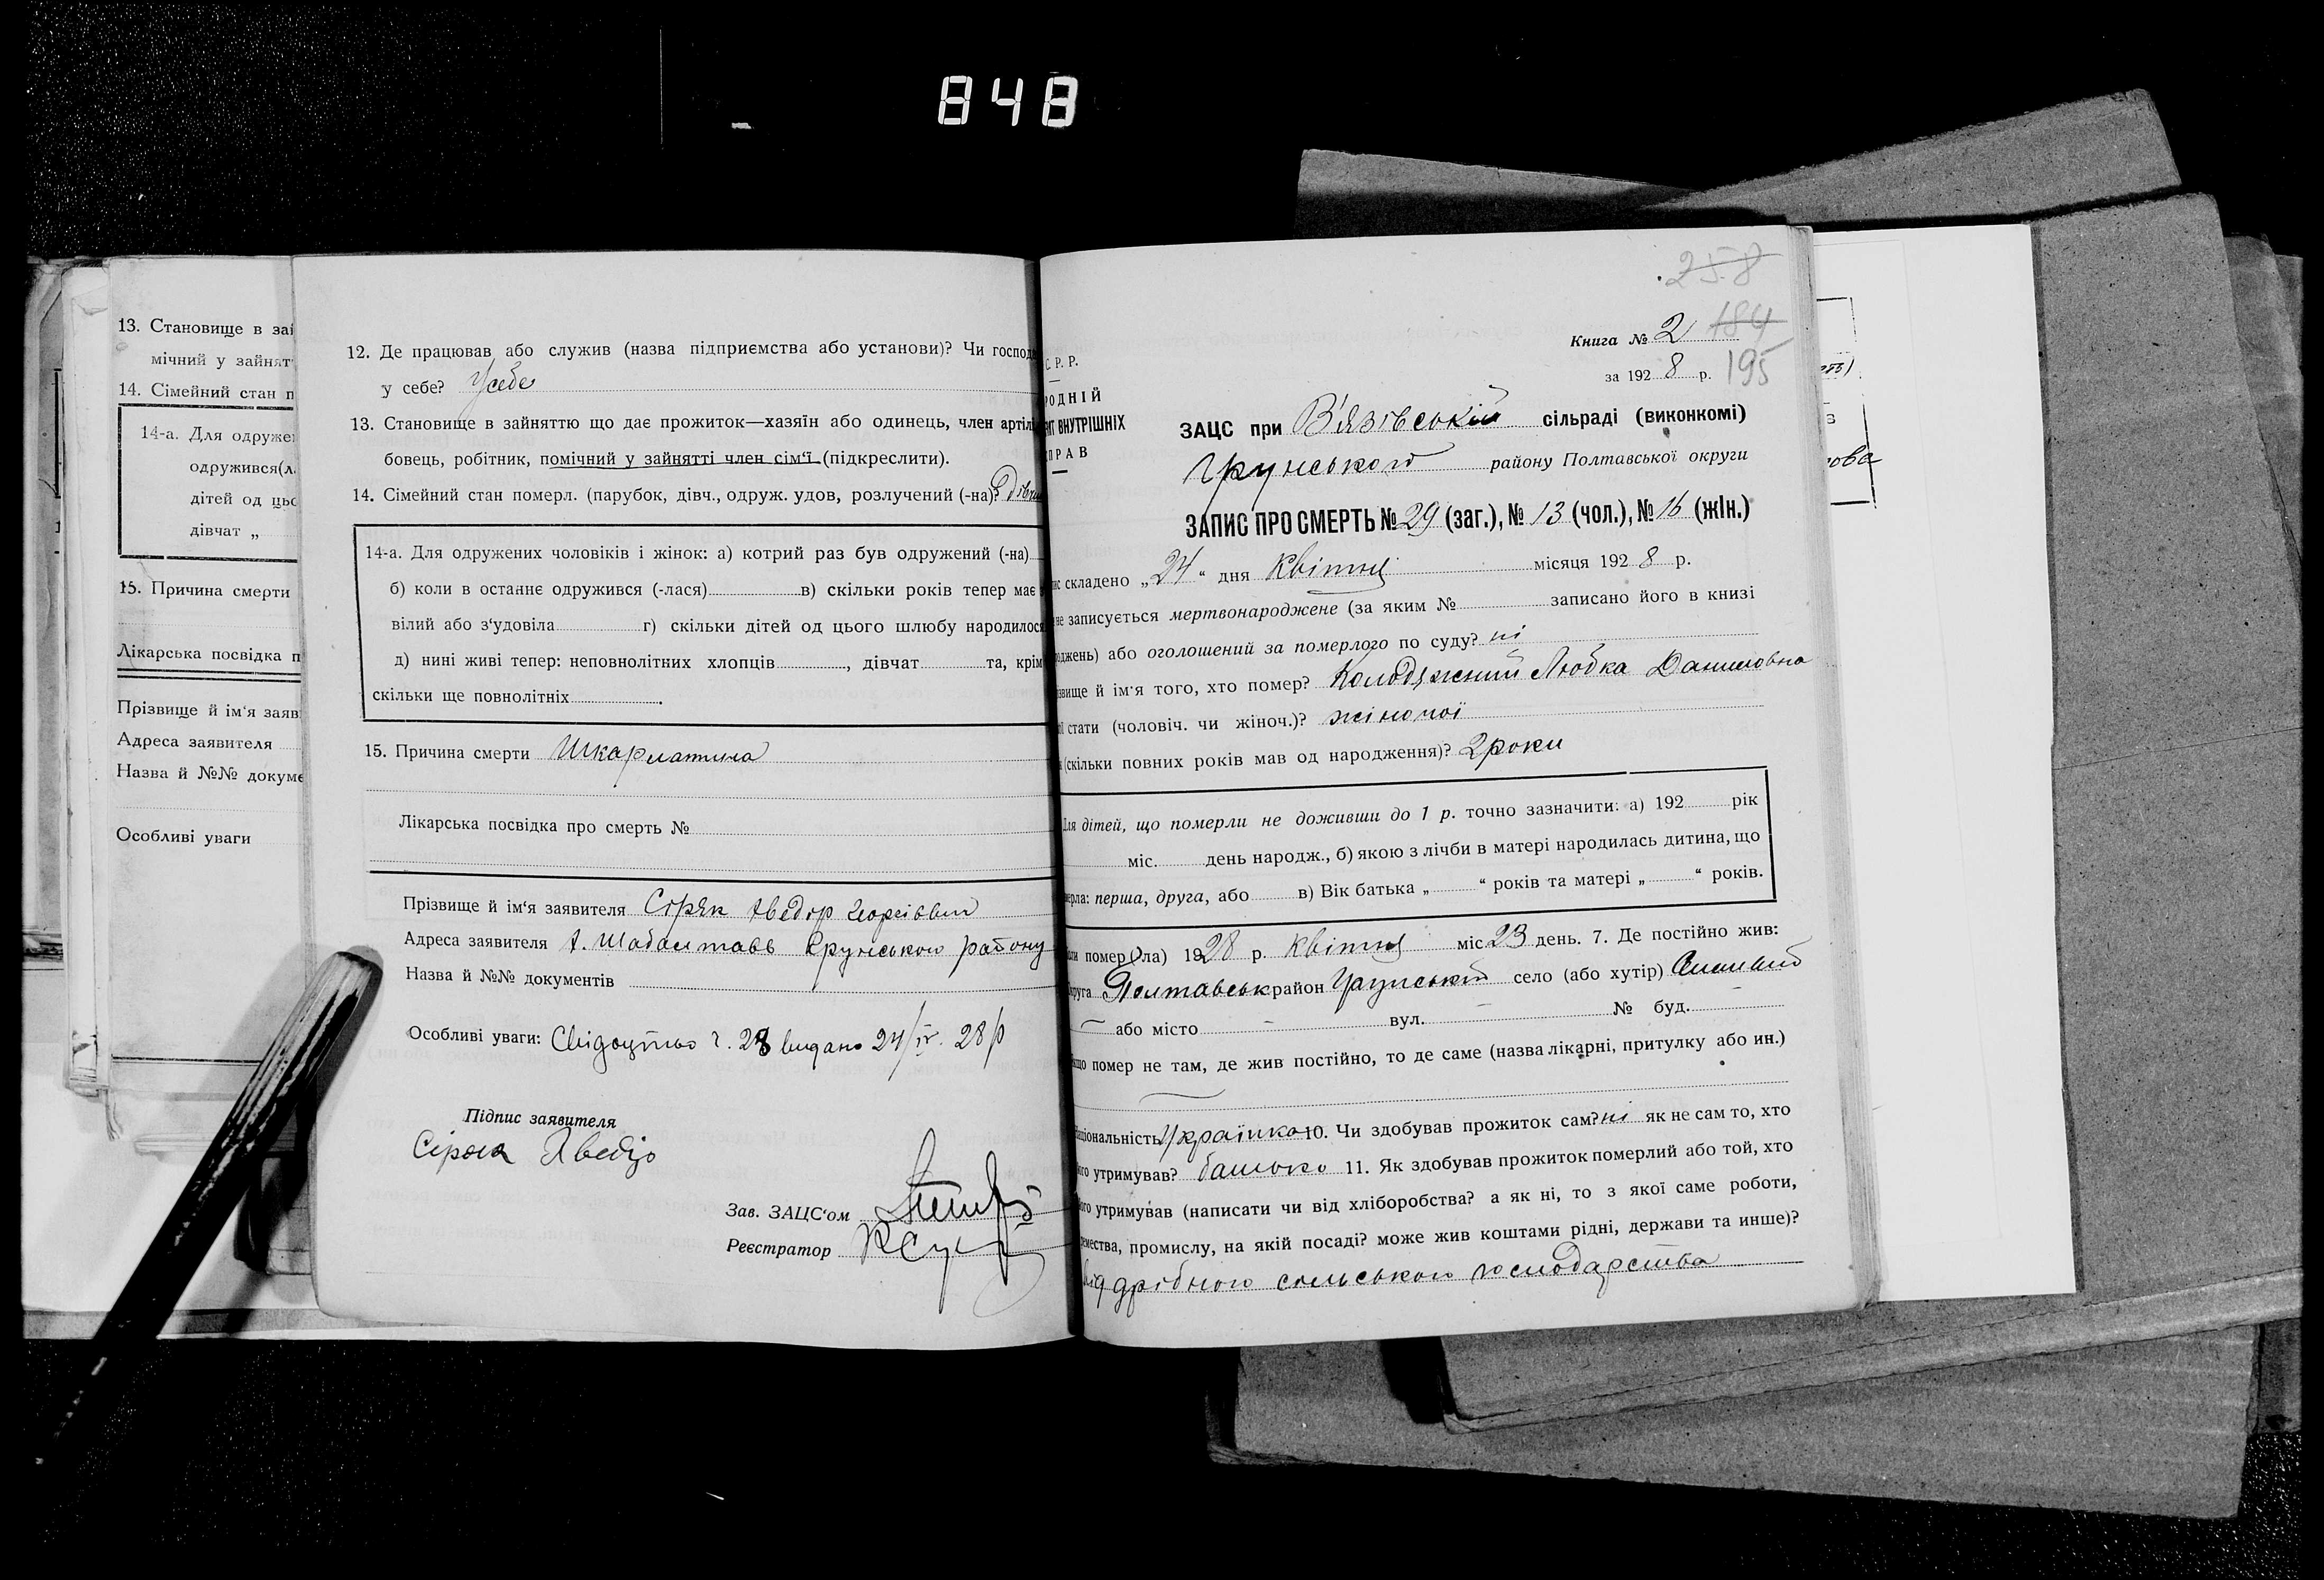 848
13. Становище в зай
мічний у зайнят
14. Сімейний стан п
14-а. Для одружен
одружився(л
дітей од цьо
дівчат „
15. Причина смерти
Лікарська посвідка п
Прізвище й ім'я заяв
Адреса заявителя
Назва й №№ докуме
Особливі уваги
12. Де працював або служив (назва підприємства або установи)? Чи господа
у себе? У себе
13. Становище в зайняттю що дає прожиток—хазяїн або одинець, член артіл
бовець, робітник, помічний у зайнятті член сім'ї (підкреслити).
14. Сімейний стан померл. (парубок, дівч., одруж. удов, розлучений (-на)?
14-а. Для одружених чоловіків і жінок: а) котрий раз був одружений (-на)
б) коли в останнє одружився (-лася) в) скільки років тепер має
вілий або з'удовіла г) скільки дітей од цього шлюбу народилося
д) нині живі тепер: неповнолітних хлопців , дівчат та, крім
скільки ще повнолітніх .
15. Причина смерти Шкарлатина
Лікарська посвідка про смерть №
Прізвище й ім'я заявителя Сіряк
Адреса заявителя Грунського району
Назва й №№ документів
Особливі уваги: Свідоцтво ч. 28 видано 24/IV. 28 р
Підпис заявителя
Зав. ЗАЦС'ом
Реєстратор
258
Книга № 2 184
за 192 8 р. 195
С. Р. Р.
РОДНІЙ
ІЯТ ВНУТРІШНІХ
ПРАВ
ЗАЦС при В'язівській сільраді (виконкомі)
Грунського району Полтавської округи
ЗАПИС ПРО СМЕРТЬ № 29 (заг.), № 13 (чол.), № 16 (жін.)
ис складено „24“ дня Квітня місяця 192 8 р.
не записується мертвонароджене (за яким № записано його в книзі
роджень) або оголошений за померлого по суду? ні
звище й ім'я того, хто помер? Колодяжний Любка Даниловна
ої стати (чоловіч. чи жіноч.)? жіночої
(скільки повних років мав од народження)? 2 роки
Для дітей, що померли не доживши до 1 р. точно зазначити: а) 192 рік
міс. день народж., б) якою з лічби в матері народилась дитина, що
мерла: перша, друга, або в) Вік батька „ “ років та матері „ “ років.
оли помер (ла) 1928 р. Квітня міс 23 день. 7. Де постійно жив:
круга Полтавськ район Грунський село (або хутір)
або місто - вул. - № буд. -
кщо помер не там, де жив постійно, то де саме (назва лікарні, притулку або ин.)
аціональність Українка 10. Чи здобував прожиток сам? ні як не сам то, хто
його утримував? батько 11. Як здобував прожиток померлий або той, хто
його утримував (написати чи від хліборобства? а як ні, то з якої саме роботи,
ремества, промислу, на якій посаді? може жив коштами рідні, держави та инше)?
від дрібного сільського господарства